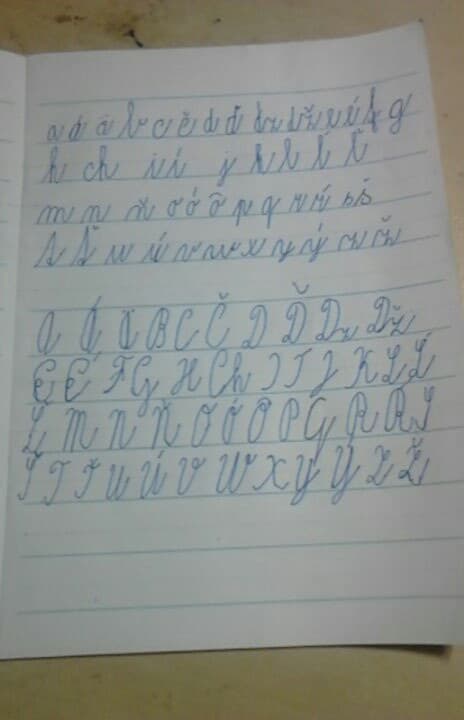 a á ä b c č d ď dz dž e é f g
h ch i í j k l ĺ ľ
m n ň o ó ô p q r ŕ s š
t ť u ú v w x y ý z ž
A Á Ä B C Č D Ď Dz Dž
E É F G H Ch I Í J K L Ĺ
Ľ M N Ň O Ó Ô P Q R Ŕ S
Š T Ť U Ú V W X Y Ý Z Ž